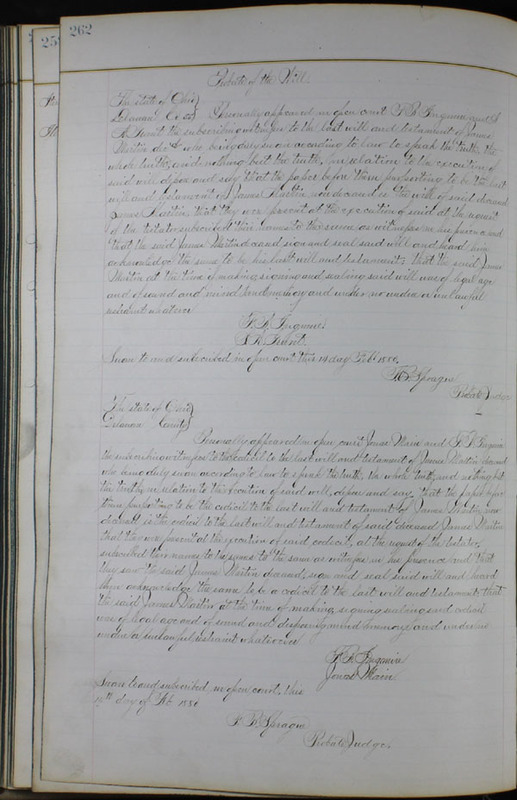 262
25
Probate of the Will.
The state of Ohio
Delaware Co ss Personally appeared in open court and S
the subscribing witnesses to the last will and testament of James
Martin decd who being duly sworn according to law to speak the truth, the
whole truth, and nothing but the truth, in relation to the execution of
said will depose and say that the paper before them purporting to be the last
will and testament of James Martin now deceased is the will of said deceased
James Martin, that they were present at the execution of said at the request
of the testator subscribed their names to the same as witnesses in his presence and
that the said James Martin deceased sign and seal said will and heard him
acknowledge the same to be his last will and testament that the said James
Martin at the time of making, signing and sealing said will was of legal age
and of sound and mind and memory and under no undue or unlawful
restraint whatever
Sworn to and subscribed in open court this 14 day Feb 1880.
Sprague
Probate Judge
The state of Ohio
Delaware County
Personally appeared in open court Jonas Main and
the subscribing witnesses to the codicil to the last will and testament of James Martin deceased
who being duly sworn according to law to speak the truth, the whole truth, and nothing but
the truth, in relation to the execution of said will, depose and say that the paper before
them purporting to be the codicil to the last will and testament of James Martin now
deceased is the codicil to the last will and testament of said deceased James Martin
that they were present at the execution of said codicil, at the request of the testator,
subscribed their names to the same as witnesses in his presence and that
they saw the said James Martin deceased, sign and seal said will and heard
him acknowledge the same to be a codicil to the last will and testament that
the said James Martin at the time of making, signing sealing said codicil
was of legal age and of sound and disposing mind memory and under no
undue or unlawful restraint whatever
Jonas Main
Sworn to and subscribed in open court, this
14th day of Feb 1880
Sprague
Probate Judge.